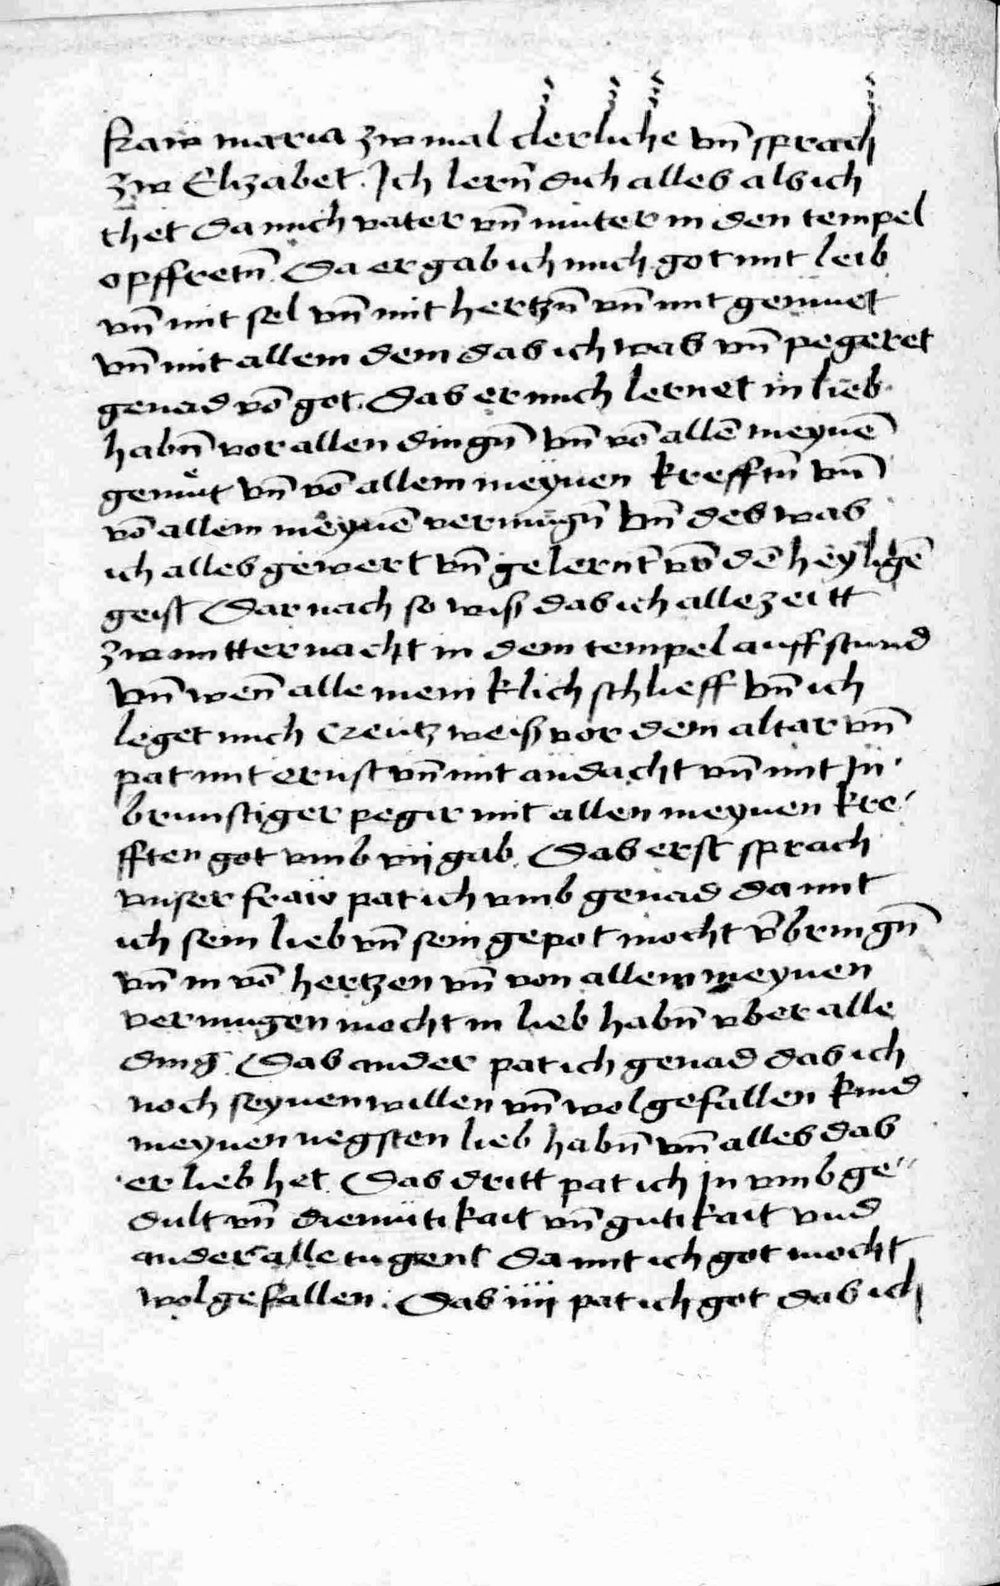 kam maria zw mal clerliche vn̄ sprach
zw Elizabet. Ich lern̄ dich alles als ich
thet da mich vater vn̄ muter in den tempel
opffretn̄. Da ergab ich mich got mit leib
vn̄ mit sel vn̄ mit hertzn̄ vn̄ mit gemuet
vn̄ mit allem dem das ich was vn̄ pegeret
genad vō got. Das er mich lernet in lieb
habn̄ vor allen dingn̄ vn̄ vō allē meynē
gemuͤt vn̄ vō allem meynen krefftn̄ vn̄
vō allem meynē vermugn̄ vn̄ des was
ich alles gewert vn̄ gelernt vō dē heyligē
geist Darnach so wiß das ich allezeitt
zw mitternacht in dem tempel auffstund
vn̄ wen̄ allemeniklich schlieff vn̄ ich
leget mich Creutz weiß vor dem altar vn̄
pat mit ernst vn̄ mit andacht vn̄ mit In
brunstiger pegir mit allen meynen kre
fften got vmb vij gab. Das erst sprach
vnser fraw pat ich vmb genad da mit
ich sein lieb vn̄ sein gepot mocht v̄bringn̄
vn̄ in vō hertzen vn̄ von allem meynen
vermugen mocht in lieb habn̄ vber alle
ding. Das ander pat ich genad das ich
noch seynen willen vn̄ wolgefallen kund
meynen negsten lieb habn̄ vn̄ alles das
er lieb het. Das dritt pat ich In vmb ge
dult vn̄ diemutikait vn̄ gutikait vnd
ander alle tugent da mit ich got mocht
wolgefallen. Das iiij pat ich got das ich